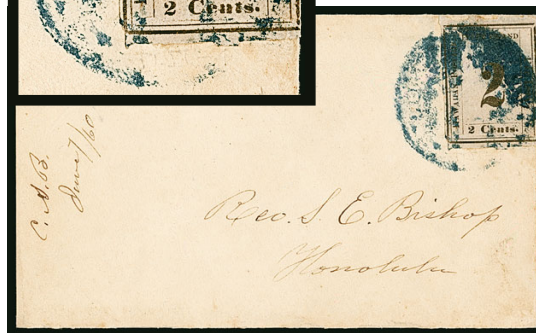 2 Cents.
2
2 Cents.
C. A. B.
June 7/60
Rev. S. E. Bishop
Honolulu